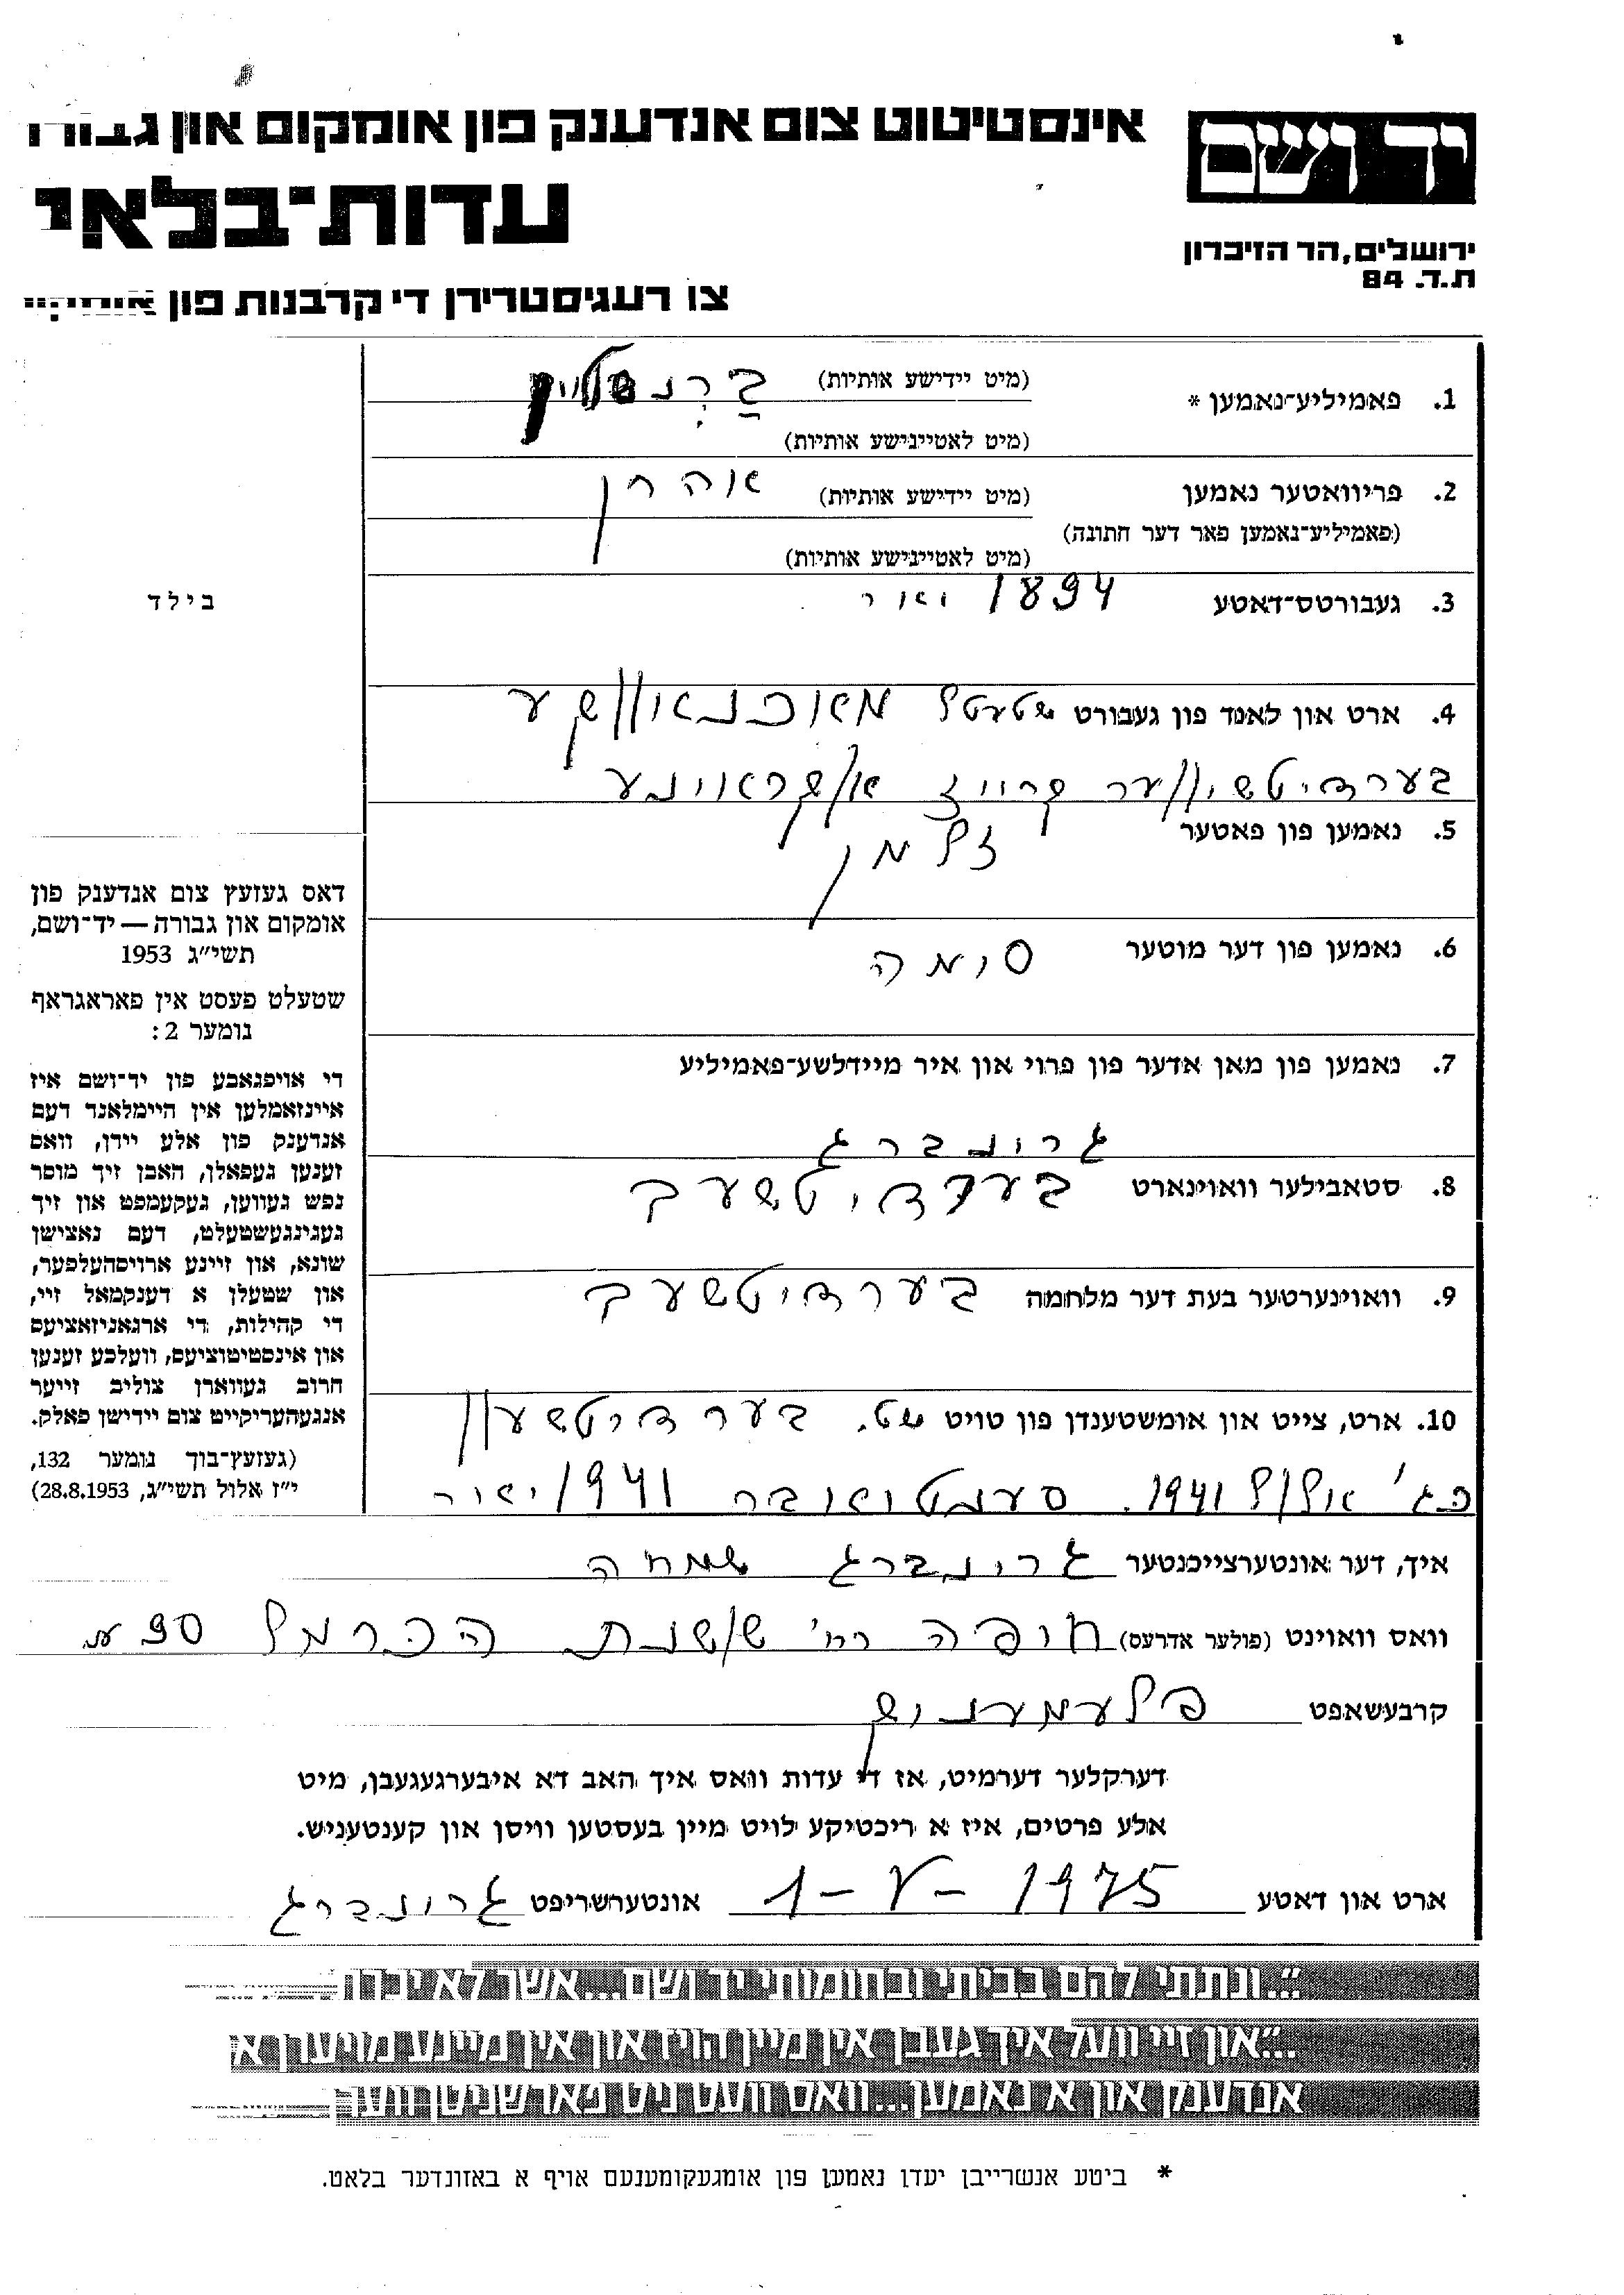 יד ושם
ירושלים, הר הזיכרון
ת.ד. 84
אינסטיטוט צום אנדענק פון אומקום און
עדות־בלאי
צו רעגיסטרירן די קרבנות פון
1. פאמיליע־נאמען * (מיט יידישע אותיות)
(מיט לאטיינישע אותיות)
2. פריוואטער נאמען (מיט יידישע אותיות) אהרן
(פאמיליע־נאמען פאר דער חתונה)
(מיט לאטיינישע אותיות)
3. געבורטס־דאטע 1894 יאור
4. ארט און לאנד פון געבורט שטעטל
בערדיטשיווער קרייז אוקראוינע
5. נאמען פון פאטער זלמן
6. נאמען פון דער מוטער סומה
7. נאמען פון מאן אדער פון פרוי און איר מיידלשע־פאמיליע
גרונברג
8. סטאבילער וואוינארט בערדיטשעב
9. וואוינערטער בעת דער מלחמה בערדיטשעב
10. ארט, צייט און אומשטענדן פון טויט שט. בערדיטשעוו
כג' אלול 1941. סענטואבר 1941 יאור
איך, דער אונטערצייכנטער גרונברג שמחה
וואס וואוינט (פולער אדרעס) חיפה רח' שושנת הכרמל
קרבעשאפט פלעמעניק
דערקלער דערמיט, אז די עדות וואס איך האב דא איבערגעגעבן, מיט
אלע פרטים, איז א ריכטיקע לויט מיין בעסטען וויסן און קענטעניש.
ארט און דאטע 1-V-1975 אונטערשריפט גרונברג
בילד
דאס געזעץ צום אנדענק פון
אומקום און גבורה — יד־ושם,
תשי״ג 1953
שטעלט פעסט אין פאראגראף
נומער 2:
די אויפגאבע פון יד־ושם איז
איינזאמלען אין היימלאנד דעם
אנדענק פון אלע יידן, וואס
זענען געפאלן, האבן זיך מוסר
נפש געווען, געקעמפט און זיך
געגינגעשטעלט, דעם נאצישן
שונא, און זיינע ארויסהעלפער,
און שטעלן א דענקמאל זיי,
די קהילות, די ארגאניזאציעס
און אינסטיטוציעס, וועלכע זענען
חרוב געווארן צוליב זייער
אנגעהעריקייט צום יידישן פאלק.
(געזעץ־בוך נומער 132,
י״ז אלול תשי״ג, 28.8.1953)
״...ונתתי להם בביתי ובחומותי יד ושם...אשר לא יכרת
״...און זיי וועל איך געבן אין מיין הויז און אין מיינע מויערן א
אנדענק און א נאמען...וואס וועט ניט פארשניטן ווער
* ביטע אנשרייבן יעדן נאמען פון אומגעקומענעם אויף א באזונדער בלאט.